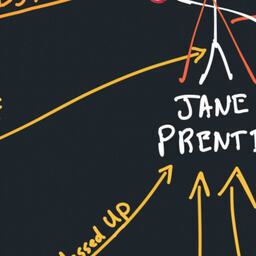 JANE
PRENTI
ssed Up